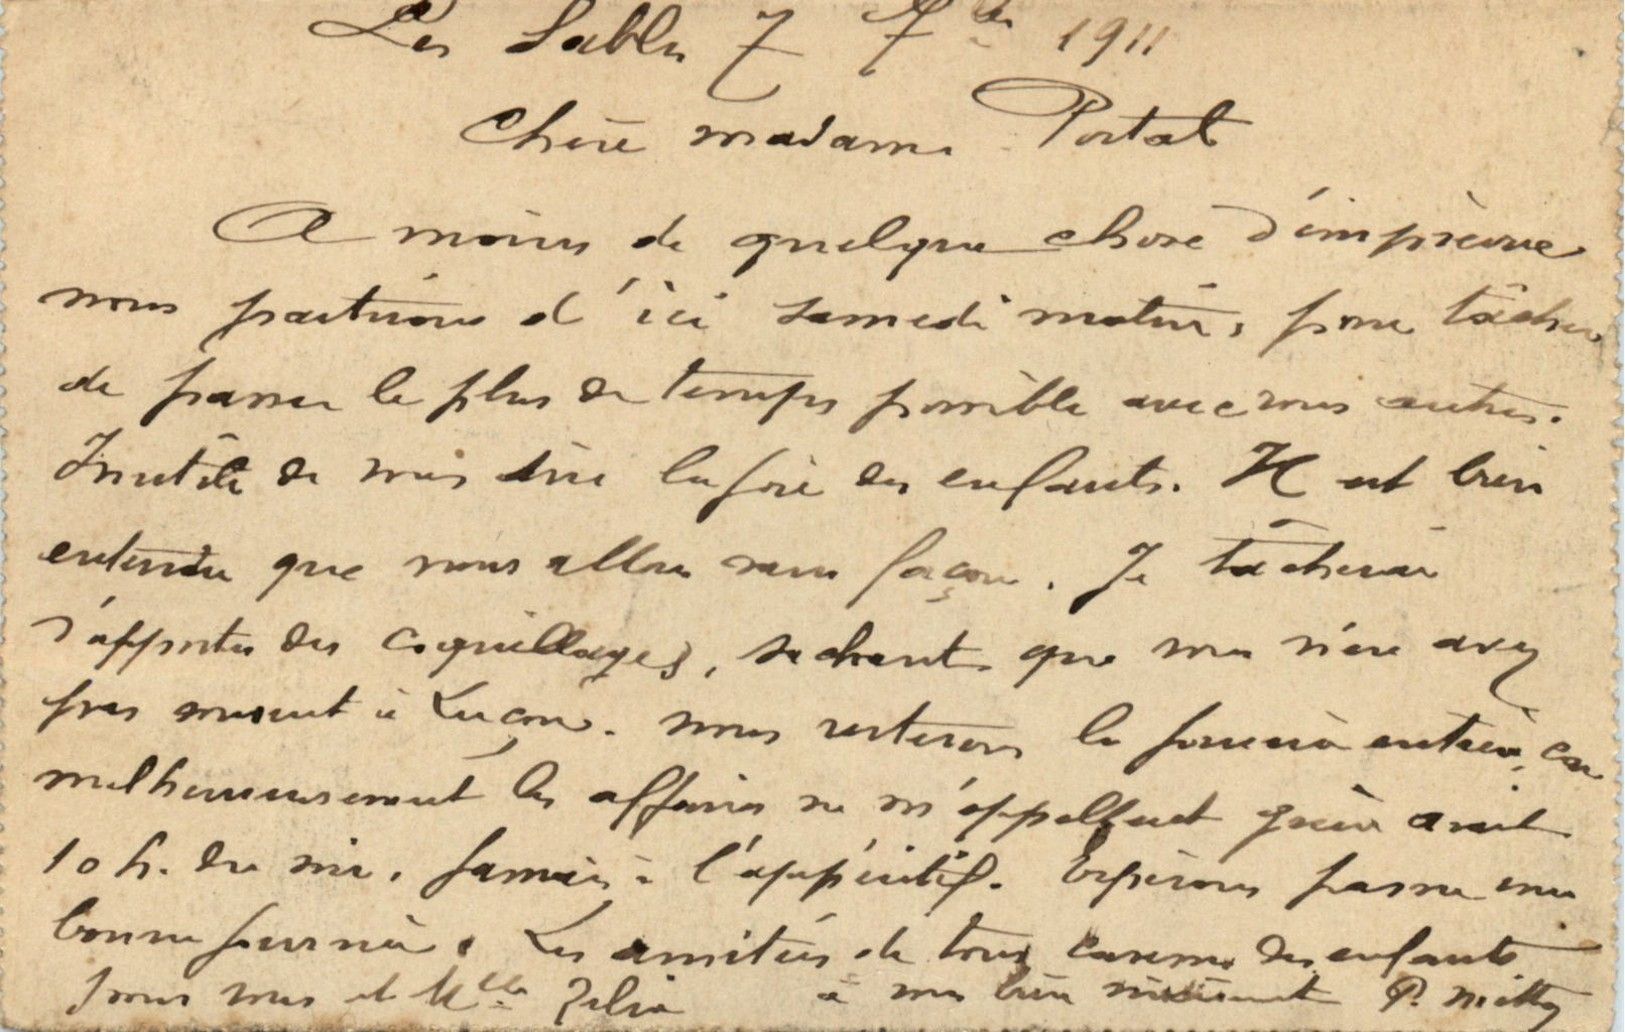 Les Sables 7 7bre 1911
Chère madame Portal
A moins de quelque chose d'imprévue
nous partirons d'ici samedi matin, pour tâcher
de passer le plus de temps possible avec vous autres.
Inutile de vous dire la joie des enfants. Il est bien
entendu que nous allons sans façon. Je tâcherai
d'apporter des coquillages, sachant que vous n'en avez
pas souvent à Luçon. nous resterons la journée entière, car
malheureusement les affaires ne m'appellent guère avant
10 h. du soir, jamais à l'appéritif. Espérons passer une
bonne journée. Les amitiés de tous caresses des enfants
pour vous et Melle Zélia à vous bien sincèrement P.